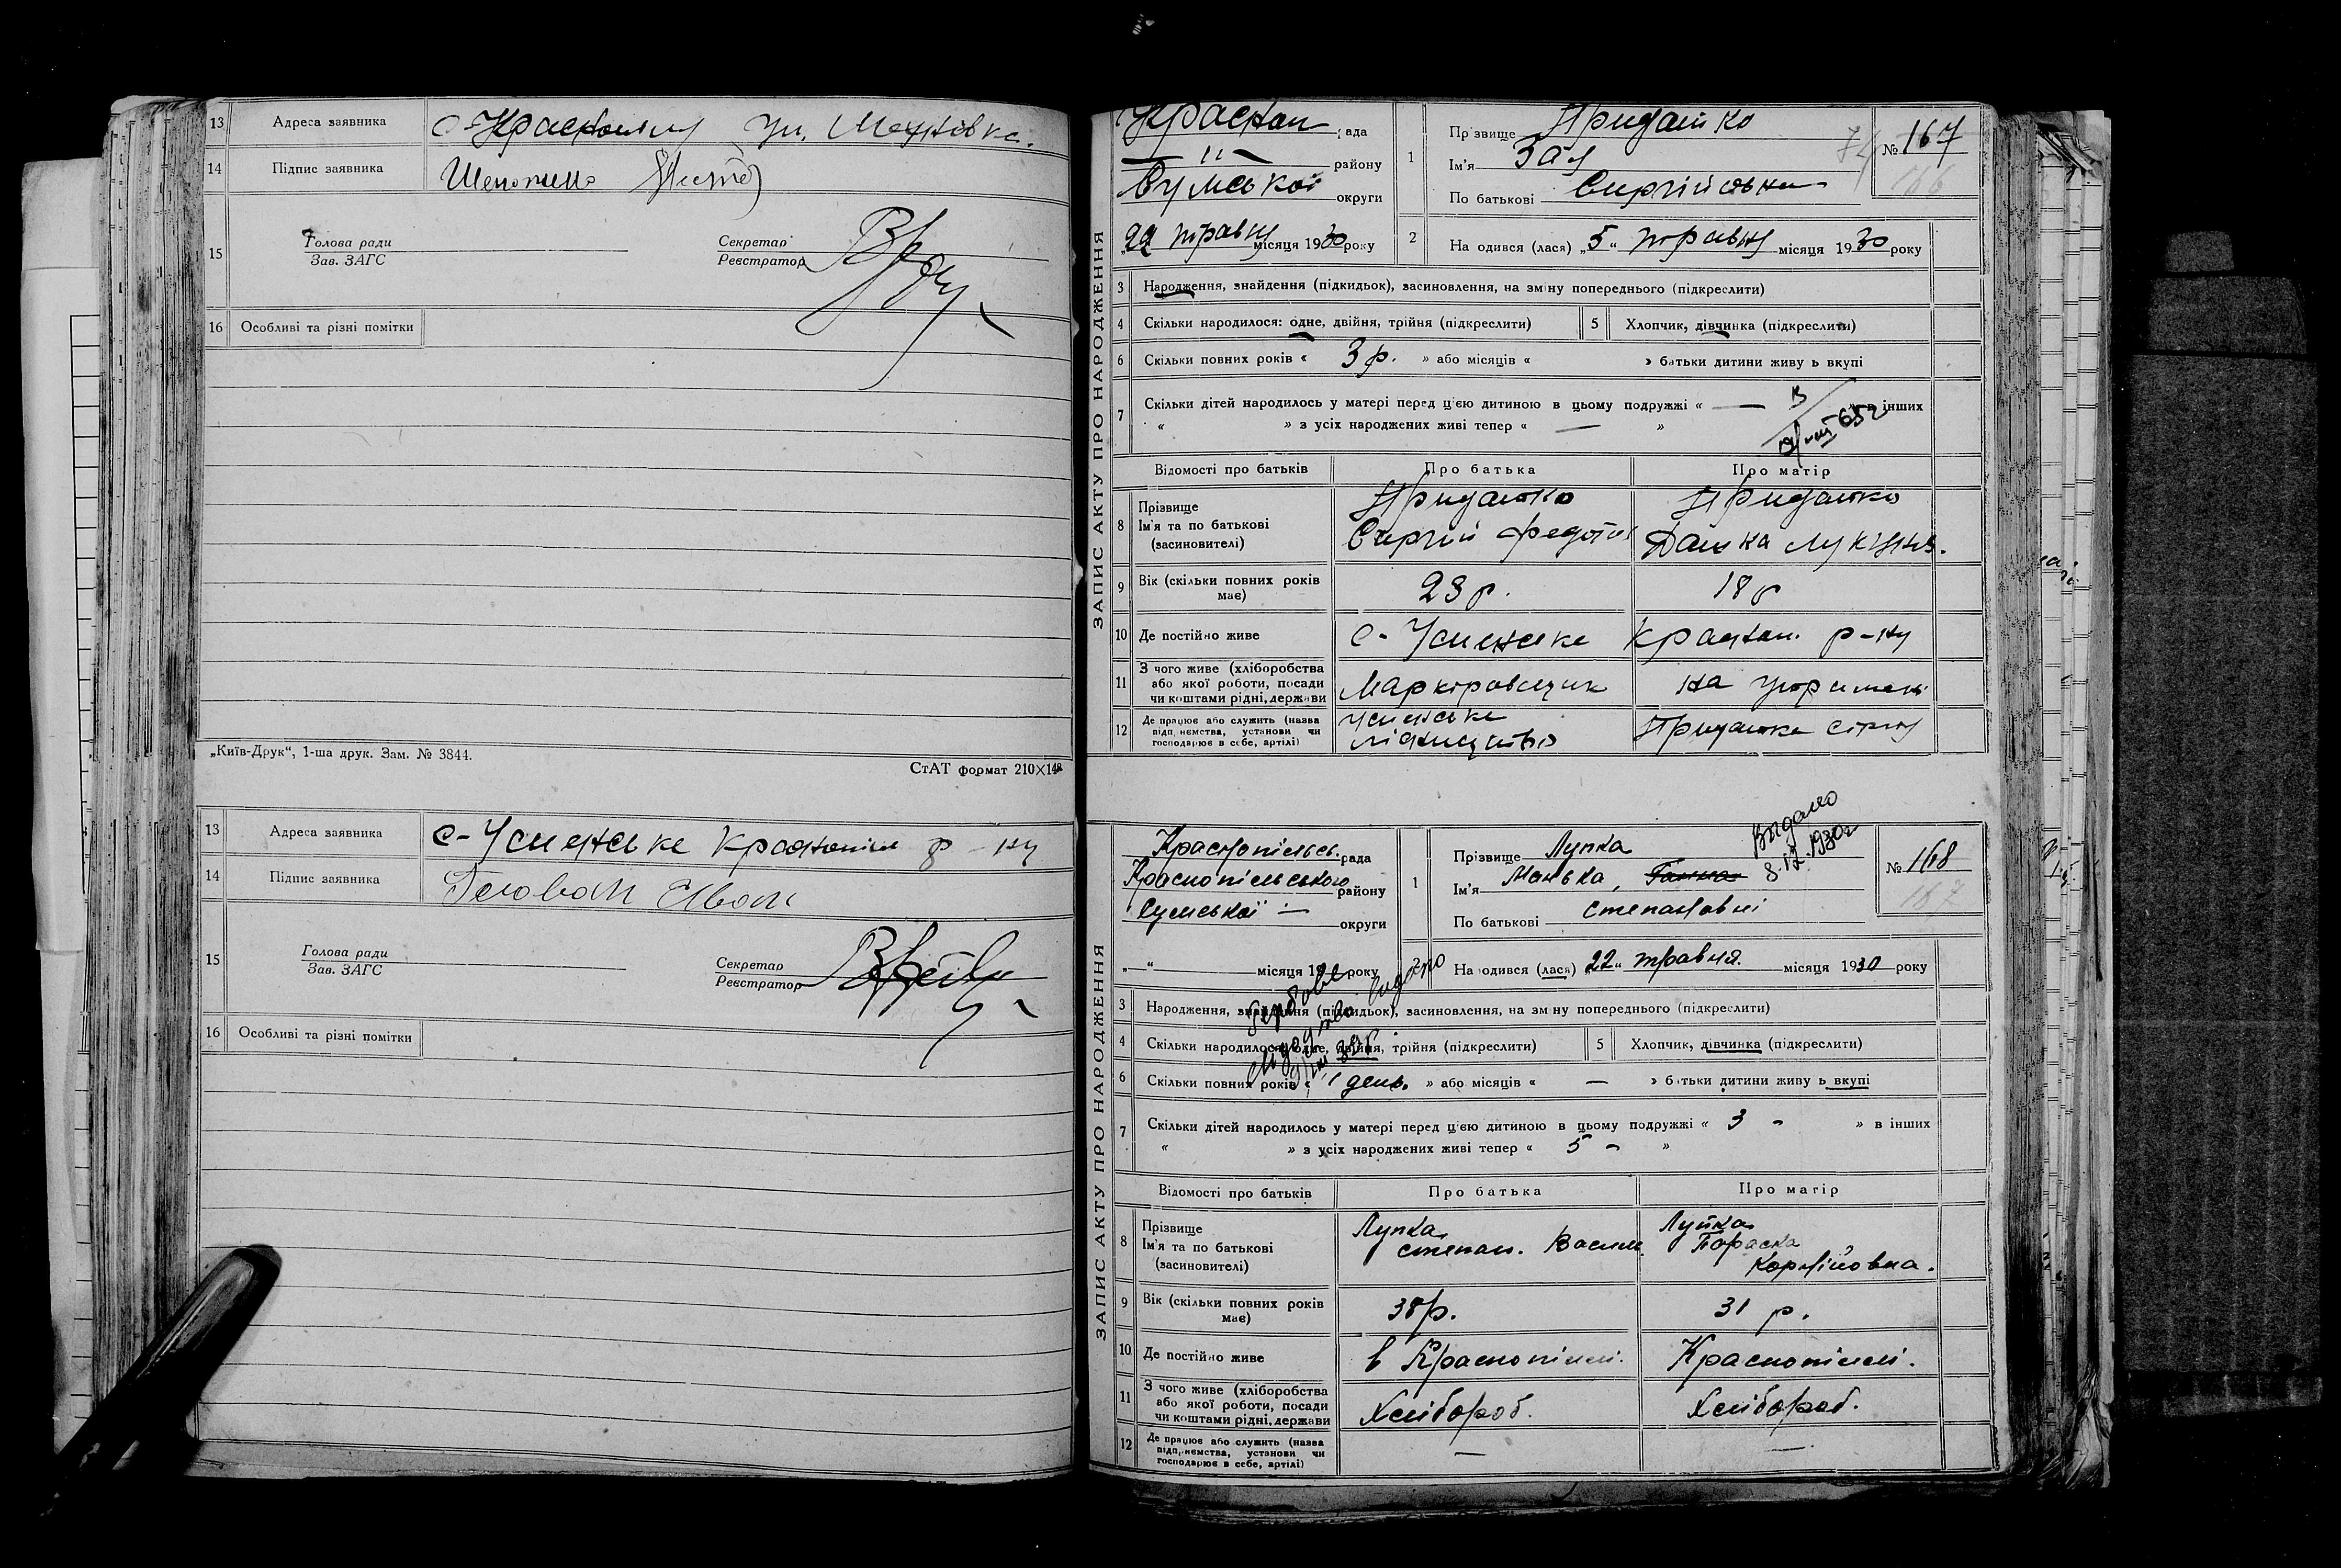 13 Адреса заявника с-Краснопілля ул. Мезенівка.
14 Підпис заявника
15 Голова ради
Зав. ЗАГС
Секретар
Реєстратор
16 Особливі та різні помітки
„Київ-Друк“, 1-ша друк. Зам. № 3844.
СтАТ формат 210×148
13 Адреса заявника с-Успенське Краснопіл р-ну
14 Підпис заявника Головань Іван
15 Голова ради
Зав. ЗАГС
Секретар
Реєстратор
16 Особливі та різні помітки
ЗАПИС АКТУ ПРО НАРОДЖЕННЯ
Краспоп рада
— " — району
Сумської округи
„22 травня місяця 1930 року
1 Прізвище Придатко
Ім'я Зая
По батькові Сиргіївна
74 № 167
166
2 На одився (лася) „5“ травня місяця 1930 року
3 Народження, знайдення (підкидьок), засиновлення, на зміну попереднього (підкреслити)
4 Скільки народилося: одне, двійня, трійня (підкреслити) 5 Хлопчик, дівчинка (підкреслити)
6 Скільки повних років « 3 р. » або місяців « » батьки дитини живуть вкупі
7 Скільки дітей народилось у матері перед цією дитиною в цьому подружжі « — » в інших
« » з усіх народжених живі тепер « — »
Відомості про батьків Про батька Про матір
8 Прізвище Придатко Придатко
Ім'я та по батькові Сиргій Федотов Дашка Лукінів.
(засиновителі)
9 Вік (скільки повних років має) 23 р. 18 р
10 Де постійно живе с-Успенське Краспоп. р-ну
11 З чого живе (хліборобства або якої роботи, посади чи коштами рідні, держави Маркіровщик на утриманні
12 Де працює або служить (назва підприємства, установи чи господарює в себе, артілі) Успенське лісництво Придатка Сіргія
ЗАПИС АКТУ ПРО НАРОДЖЕННЯ
Краснопільсь. рада
Краснопільського району
Сумської — округи
„ “ місяця 19 року
1 Прізвище Лупка
Ім'я Манька, Ганна
По батькові Степановні
Видано
8.12.1930г
№ 168
167
2 На одився (лася) „22“ травня. місяця 1930 року
видано
3 Народження, знайдення (підкидьок), засиновлення, на зміну попереднього (підкреслити)
4 Скільки народилося: одне, двійня, трійня (підкреслити) 5 Хлопчик, дівчинка (підкреслити)
6 Скільки повних років « 1 день. » або місяців « — » батьки дитини живуть вкупі
7 Скільки дітей народилось у матері перед цією дитиною в цьому подружжі « 3 - » в інших
« » з усіх народжених живі тепер « 5 - »
Відомості про батьків Про батька Про матір
8 Прізвище Лупка Лупка
Ім'я та по батькові Степан. Василь Параска
(засиновителі) Корніїовна.
9 Вік (скільки повних років має) 38 р. 31 р.
10 Де постійно живе в Краснопіллі. Краснопіллі.
11 З чого живе (хліборобства або якої роботи, посади чи коштами рідні, держави Хлібороб. Хлібороб.
12 Де працює або служить (назва підприємства, установи чи господарює в себе, артілі) — —